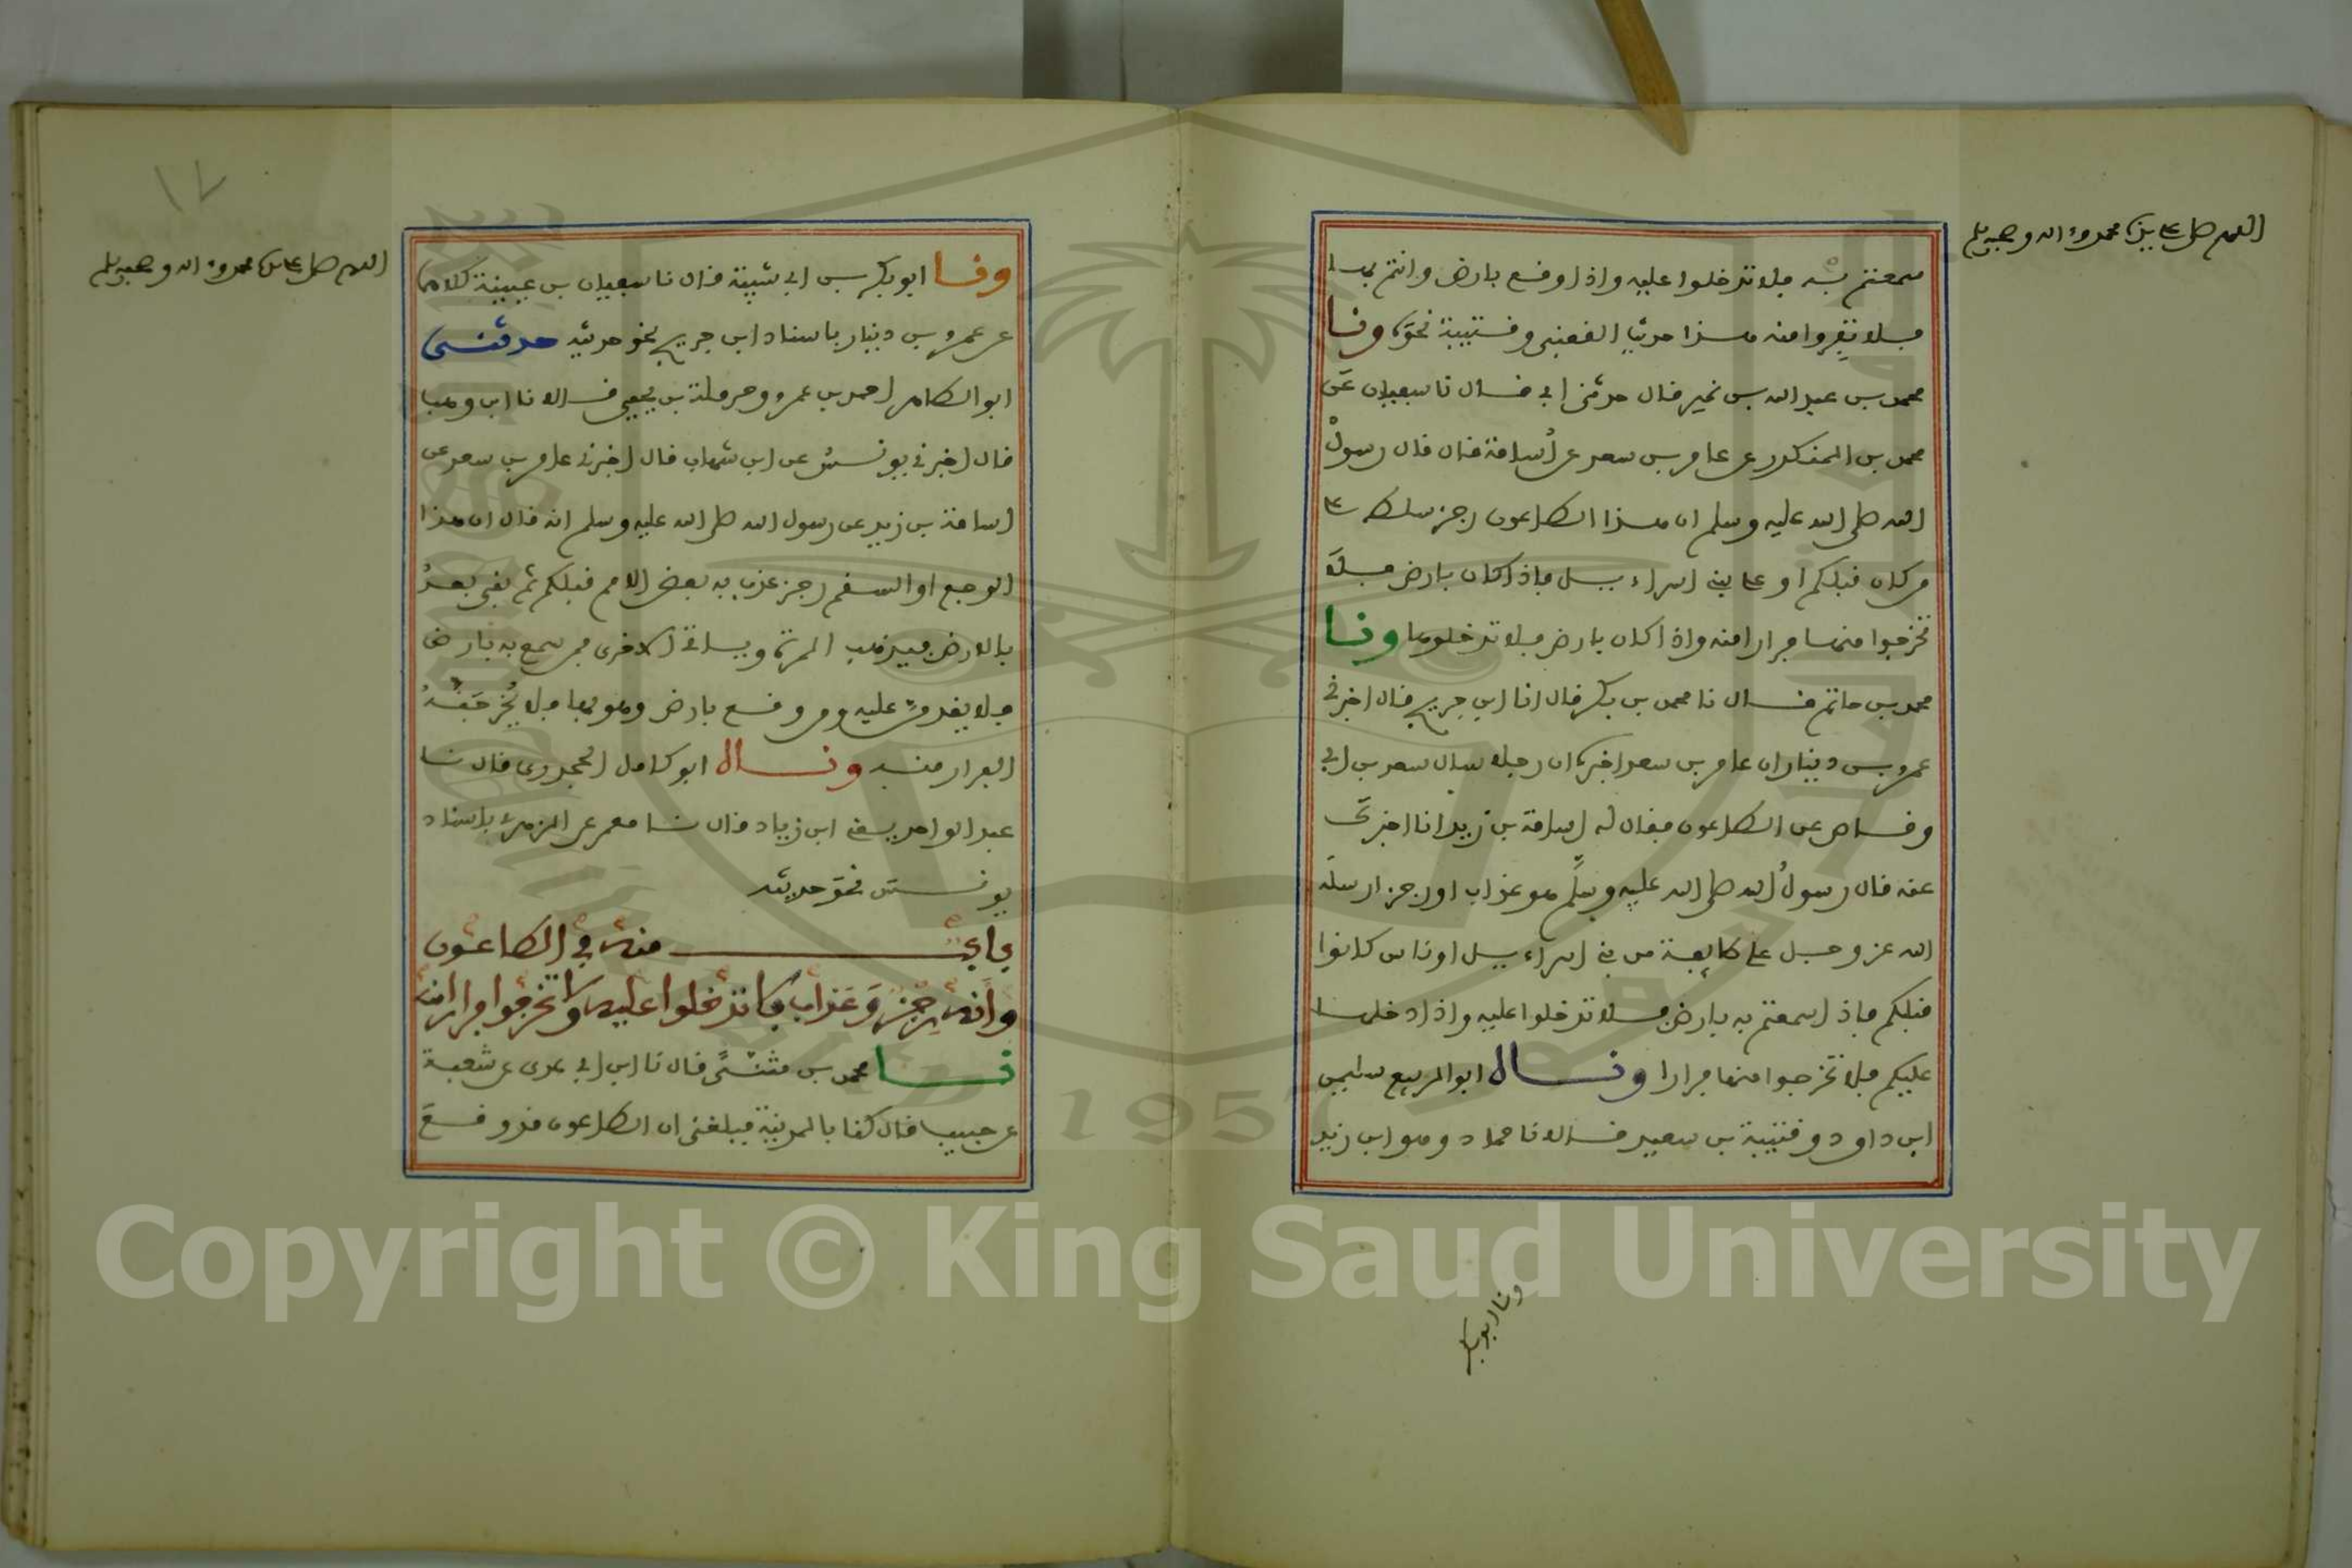 اللهم صل على سيدنا محمد وءاله وصحبه وسلم
سمعتم به فلا تدخلوا عليه واذا وقع بارض وانتم بها
فلا تفروا منه هذا حديث القعنبي وقتيبة نحوه ونا
محمد بن عبد الله بن نمير قال حدثني ابي قال نا سفيان عن
محمد بن المنكدر عن عامر بن سعد عن أسامة قال قال رسول
الله صلى الله عليه وسلم ان هذا الطاعون رجز سلط على
من كان قبلكم او على بني اسراءيل فاذا كان بارض فلا
تخرجوا منها فرارا منه واذا كان بارض فلا تدخلوها ونا
محمد بن حاتم قال نا محمد بن بكر قال انا ابن جريج قال اخبرني
عمرو بن دينار ان عامر بن سعد اخبره ان رجلا سال سعد بن ابي
وقاص عن الطاعون فقال له اسامة بن زيد انا اخبرك
عنه قال رسول الله صلى الله عليه وسلم هو عذاب او رجز ارسله
الله عز وجل على طايفة من بني اسراءيل او ناس كانوا
قبلكم فاذا سمعتم به بارض فلا تدخلوا عليه واذا دخلها
عليكم فلا تخرجوا منها فرارا ونا ابو الربيع سليمن
ابن داود وقتيبة بن سعيد قالا نا حماد وهو ابن زيد
ونا ابو بكر
١٧
اللهم صل على سيدنا محمد وءاله وصحبه وسلم
ونا ابو بكر بن ابي شيبة قال نا سفيان بن عيينة كلاهما
عن عمرو بن دينار باسناد ابن جريج نحو حديثه حدثني
ابو الطاهر احمد بن عمرو وحرملة بن يحيى قالا انا ابن وهب
قال اخبرني يونس عن ابن شهاب قال اخبرني عامر بن سعد عن
اسامة بن زيد عن رسول الله صلى الله عليه وسلم انه قال ان هذا
الوجع او السقم رجز عذب به بعض الامم قبلكم ثم بقي بعد
بالارض فيذهب المرة وياتي الاخرى فمن سمع به بارض
فلا يقدمن عليه ومن وقع بارض وهو بها فلا يخرجنه
الفرار منه ونا ابو كامل الجحدري قال نا
عبد الواحد يعني ابن زياد قال نا معمر عن الزهري باسناد
يونس نحو حديثه
باب منه في الطاعون
وأنه رجز وعذاب فلا تدخلوا عليه ولا تخرجوا فرارا منه
نا محمد بن مثنى قال نا ابن ابي عدي عن شعبة
عن حبيب قال كنا بالمدينة فبلغني ان الطاعون قد وقع
Copyright © King Saud University
1957